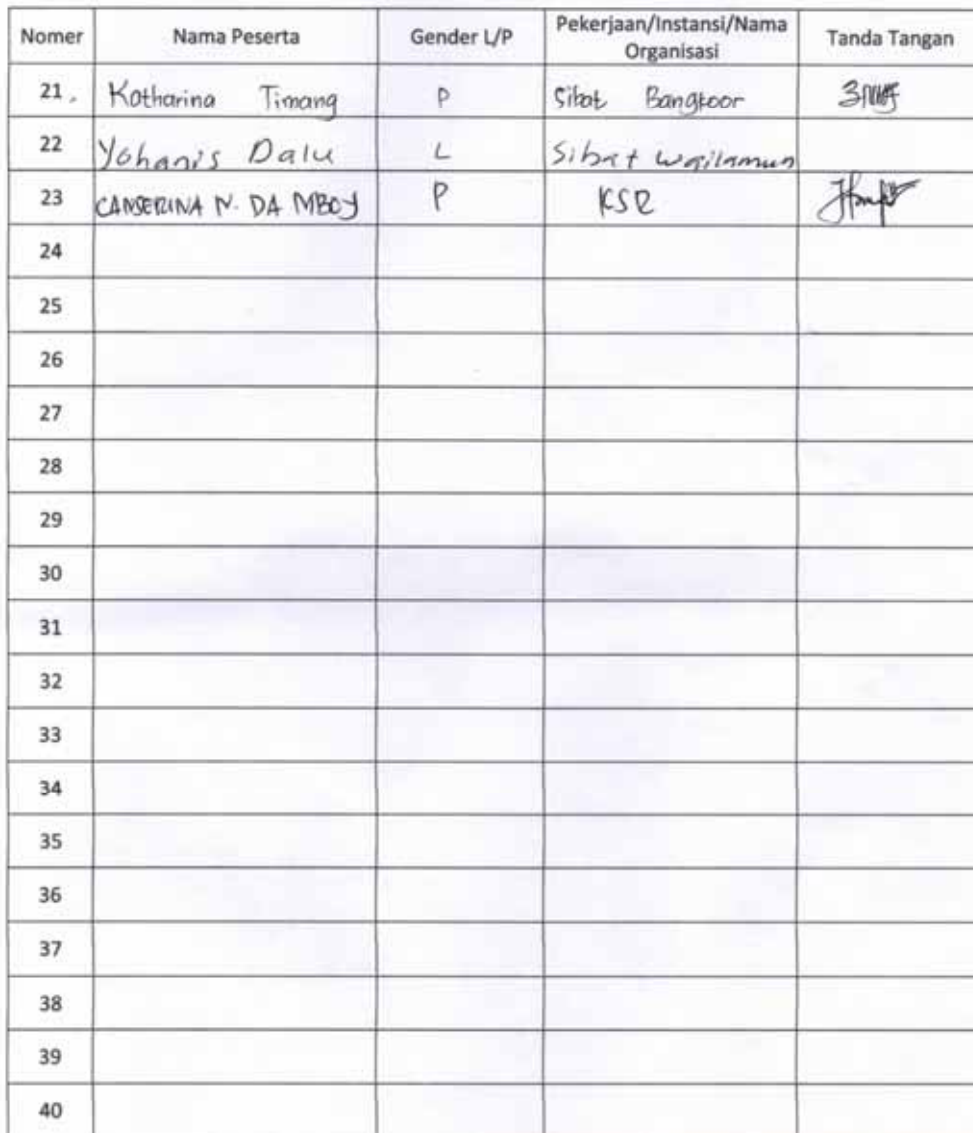 Nomer Nama Peserta Gender L/P Pekerjaan/Instansi/Nama Organisasi Tanda Tangan
21. Kotharina Timang P Sibat Bangkoor
22 Yohanis Dalu L Sibat Wailamun
23 CANSERINA N. DA MBOY P KSR
24
25
26
27
28
29
30
31
32
33
34
35
36
37
38
39
40